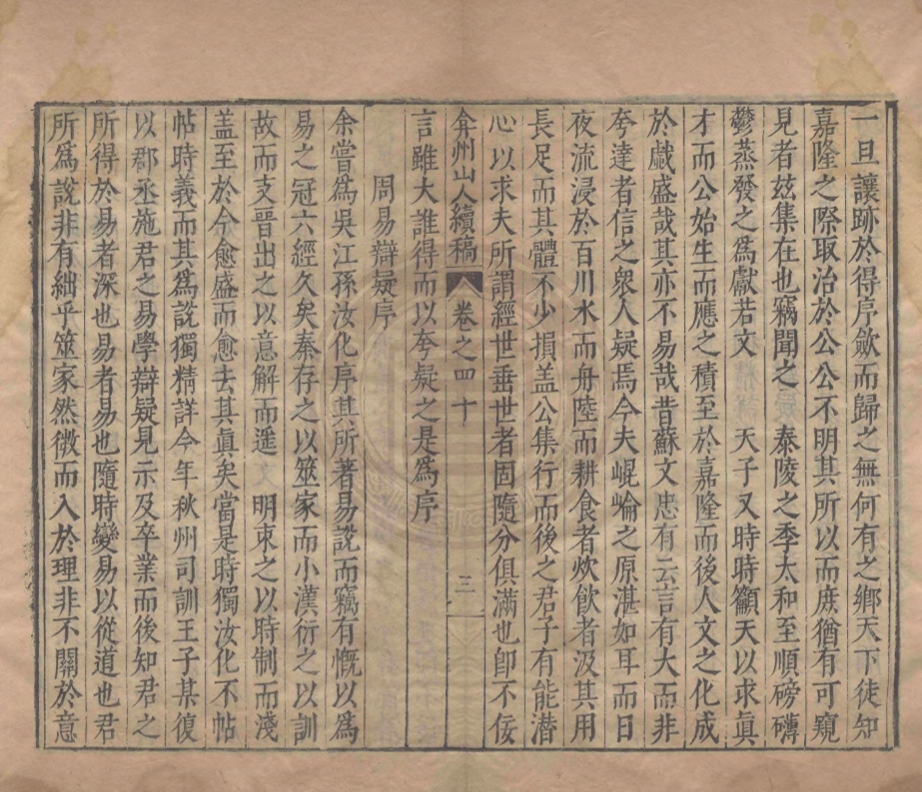 一旦讓跡於得序歛而歸之無何有之鄉天下徒知
嘉隆之際取治於公公不明其所以而庶猶有可窺
見者玆集在也竊聞之 泰陵之季太和至順磅礴
鬱蒸發之為獻若文 天子又時時籲天以求眞
才而公始生而應之積至於嘉隆而後人文之化成
於戲盛哉其亦不易哉昔蘇文忠有云言有大而非
夸達者信之衆人疑焉今夫崐崘之原湛如耳而日
夜流浸於百川水而舟陸而耕食者炊飲者汲其用
長足而其體不少損盖公集行而後之君子有能潜
心以求夫所謂經世垂世者固隨分俱滿也卽不佞
弇州山人續稿 卷之四十 三
言雖大誰得而以夸疑之是為序
周易辯疑序
余嘗為吳江孫汝化序其所著易說而竊有慨以為
易之冠六經久矣秦存之以筮家而小漢衍之以訓
故而支晋出之以意解而遥 明束之以時制而淺
盖至於今愈盛而愈去其眞矣當是時獨汝化不帖
帖時義而其為說獨精詳今年秋州司訓王子某復
以郡丞施君之易學辯疑見示及卒業而後知君之
所得於易者深也易者易也隨時變易以從道也君
所為說非有絀乎筮家然微而入於理非不關於意